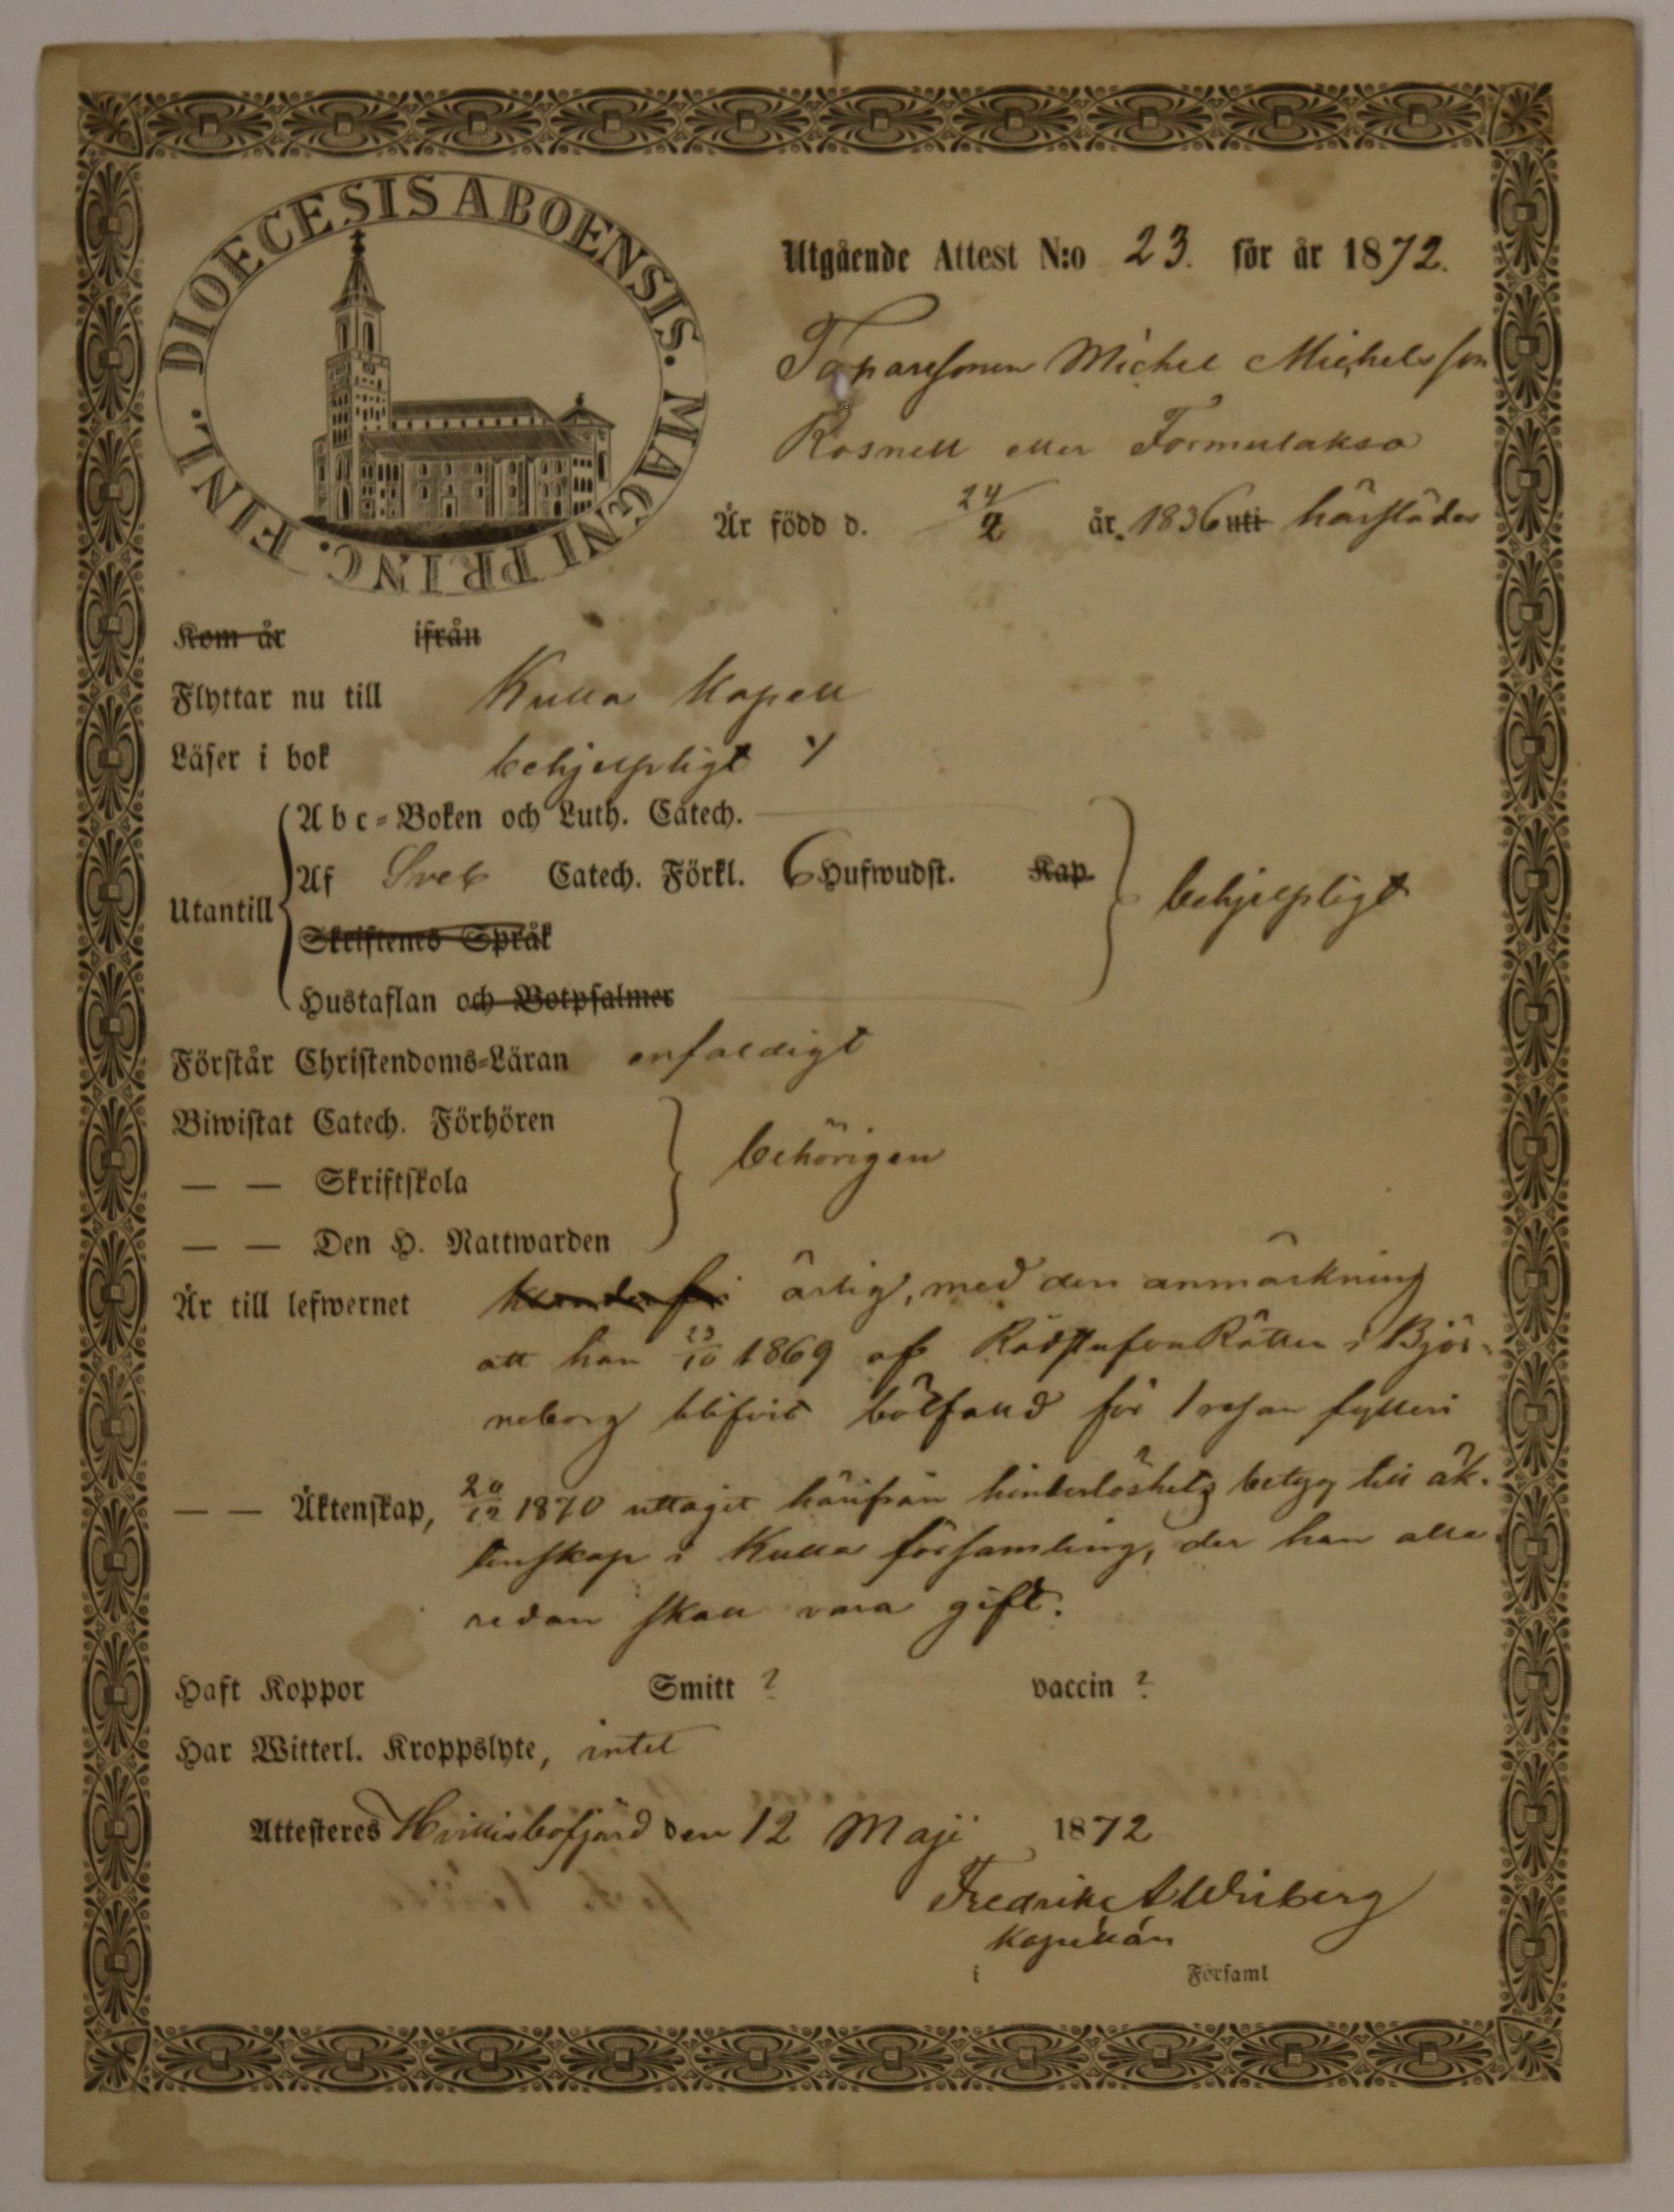 DIOECESIS ABOENSIS. MAGNI PRINC. FINL.
Utgående Attest N:o 23. för år 1872.
Michel Michelsson
Rosnell eller Tormulakso
Är född d. 24/2 år 1836 uti härstädes
Kom år ifrån
Flyttar nu till Kulla Kapell
Läser i bok behjelpligt
Abc-Boken och Luth. Catech.
Af Sveb Catech. Förkl. 6 Hufwudst. Kap.
Utantill behjelpligt
Skriftenes Språk
Hustaflan och Botpsalmer
Förstår Christendoms-Läran enfaldigt
Biwistat Catech. Förhören
— — Skriftskola behörigen
— — Den H. Nattwarden
Är till lefwernet ärlig, med den anmärkning
att han 23/10 1869 af RådstufvuRätten i Björ-
neborg blifvit bötfälld för 1 resan fylleri
— — Äktenskap, 20/12 1870 uttagit härifrån hinderslöshets betyg till äk-
tenskap i Kulla församling, der han alla
redan skall vara gift.
Haft Koppor Smitt ? vaccin ?
Har Witterl. Kroppslyte, intet
Attesteres Hvittisbofjärd den 12 Maji 1872
Fredrik A Wriberg
Kapellån
i Församl